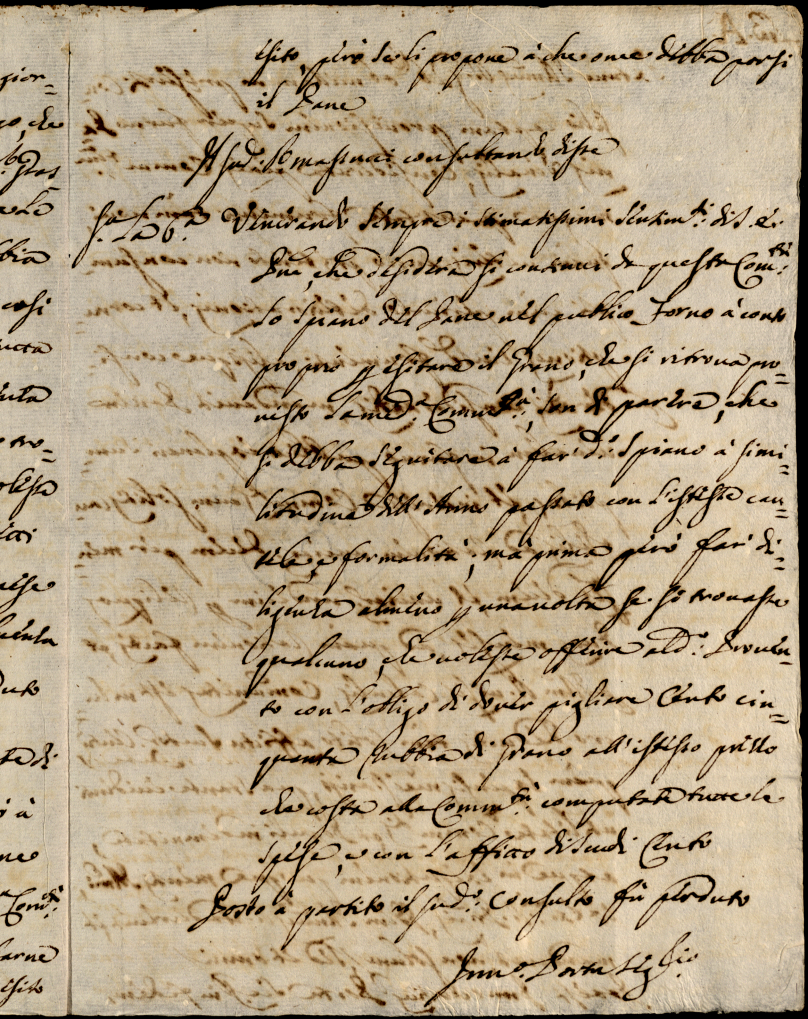 esito, però se li propone à che onze debba porsi
il Pane
Il sud.º consultando disse
Venerando sempre i stimatissimi sentim.ti di S. E.
Pne, che desidera si continui da questa Com.tà
lo spiano del Pane nel publico Forno à conto
proprio p esitare il Grano, che si ritrova pro=
visto la med.ª Comu.tà, son di parere, che
si debba seguitare à far d.º spiano à simi=
litudine dell'Anno passato con l'istesse cau=
tele, e formalità; mà prima però far di=
ligenza almeno p una volta se si trovasse
qualcuno, che volesse offerire al d.º Proven=
to con l'obligo di dover pigliare Cento cin=
quanta Rubbia di Grano all'istesso prezzo
che costa alla Comm.tà computate tutte le
spese, e con l'affitto di Scudi Cento
Posto à partito il sud.º Consulto fù perduto
Seg.rio
gior=
che
le
così
pro=
nese
te di
ò à
Com.tà
farne
esito